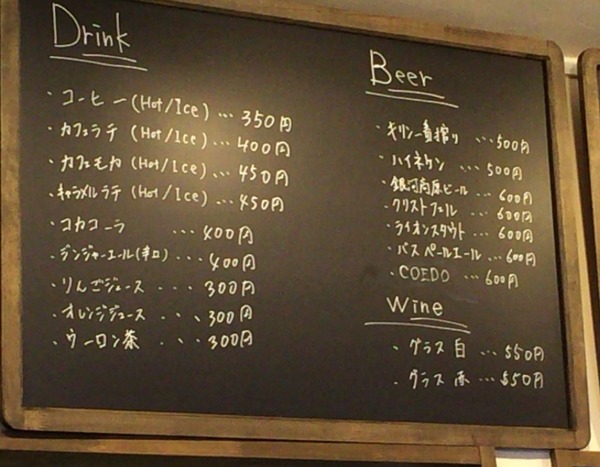 Drink
・コーヒー(Hot/Ice)…350円
・カフェラテ(Hot/Ice)…400円
・カフェモカ(Hot/Ice)…450円
・キャラメルラテ(Hot/Ice)…450円
・コカコーラ …400円
・ジンジャーエール(辛口) …400円
・りんごジュース…300円
・オレンジジュース…300円
・ウーロン茶…300円
Beer
・キリン一番搾り…500円
・ハイネケン…500円
・銀河高原ビール…600円
・クリストフェル…600円
・ライオンスタウト…600円
・バスペールエール…600円
・COEDO…600円
Wine
・グラス 白…550円
・グラス 赤…550円